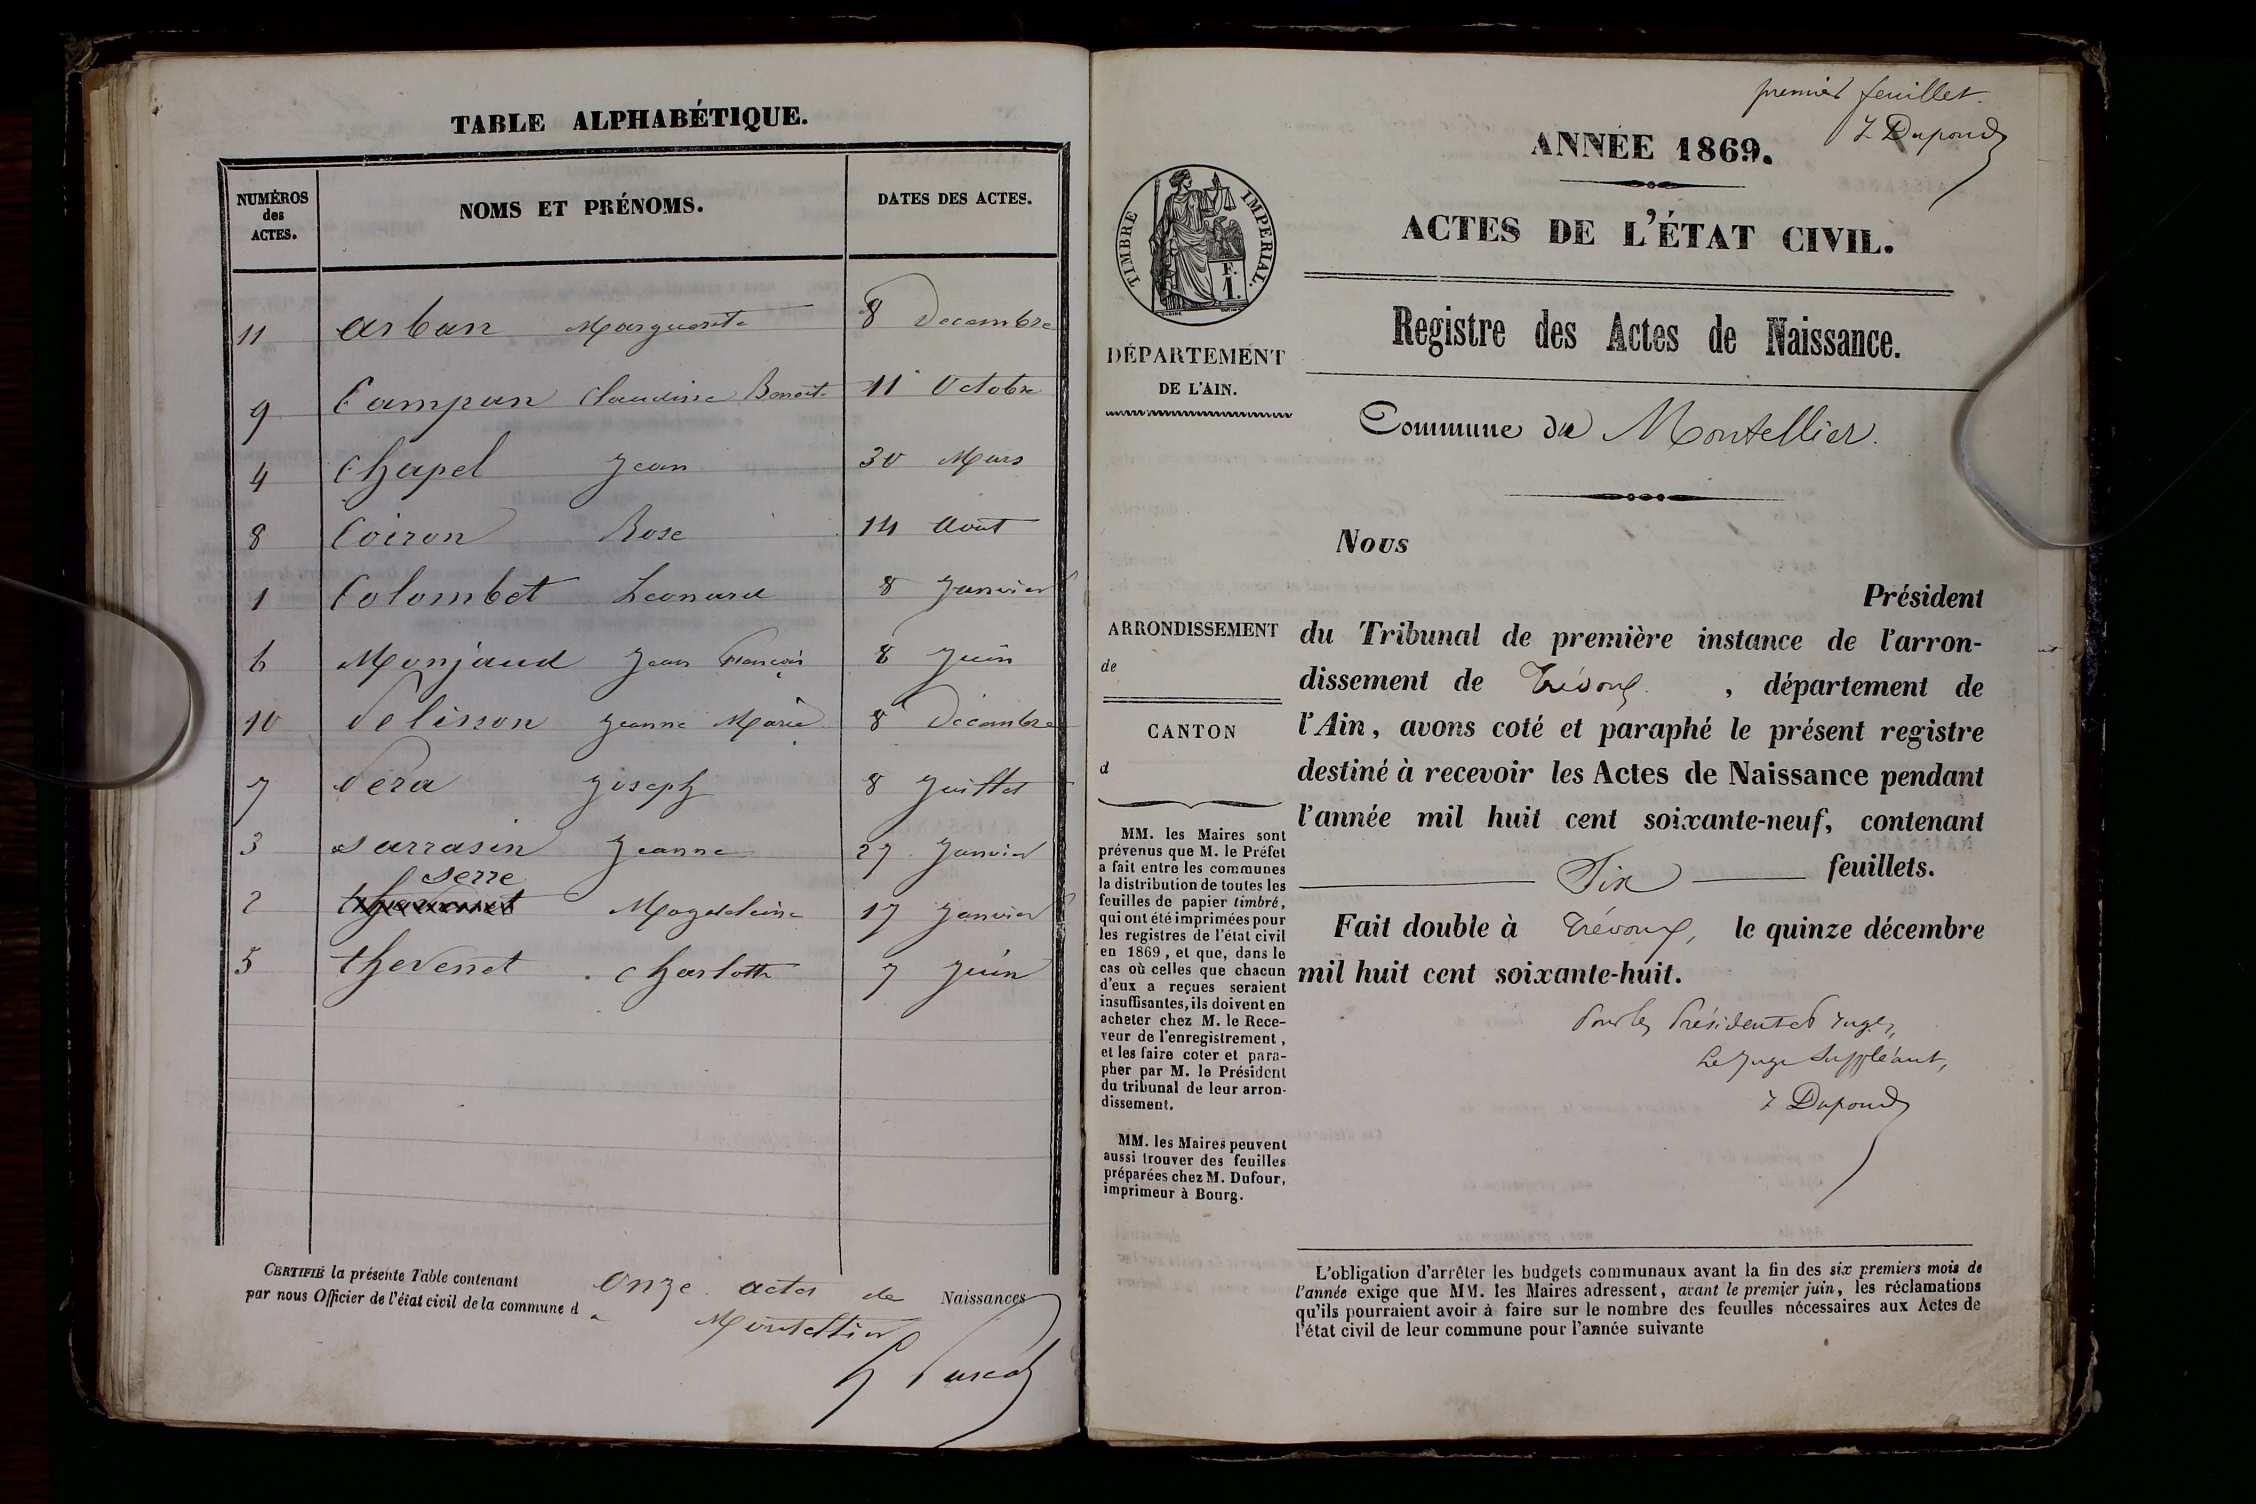 TABLE ALPHABÉTIQUE.
NUMÉROS
des
ACTES.
NOMS ET PRÉNOMS.
DATES DES ACTES.
11 Arban Marguerite 8 Decembre
9 Campan Claudine Benoite 11 Octobre
4 Chapel Jean 30 Mars
8 Coiron Rose 14 Aout
1 Colombet Leonard 8 Janvier
6 Monjaud Jean François 8 Juin
10 Pelisson Jeanne Marie 8 Décembre
7 Pera Joseph 8 Juillet
3 Sarrasin Jeanne 27 Janvier
Serre
2 Magdeleine 17 Janvier
5 thevenet Charlotte 7 Juin
CERTIFIÉ la présente Table contenant Onze actes de Naissances
par nous Officier de l'état civil de la commune d u Montellier
premier feuillet.
Dupond
ANNÉE 1869.
TIMBRE IMPERIAL.
F.
1.
ACTES DE L'ÉTAT CIVIL.
Registre des Actes de Naissance.
DÉPARTEMENT
DE L'AIN.
Commune du Montellier.
Nous
Président
du Tribunal de première instance de l'arron-
dissement de Trévoux , département de
l'Ain, avons coté et paraphé le présent registre
destiné à recevoir les Actes de Naissance pendant
l'année mil huit cent soixante-neuf, contenant
Six feuillets.
Fait double à Trévoux, le quinze décembre
mil huit cent soixante-huit.
Pour les Président et Juges,
Le Juge Suppléant,
Dupond
ARRONDISSEMENT
de
CANTON
d
MM. les Maires sont
prévenus que M. le Préfet
a fait entre les communes
la distribution de toutes les
feuilles de papier timbré,
qui ont été imprimées pour
les registres de l'état civil
en 1869, et que, dans le
cas où celles que chacun
d'eux a reçues seraient
insuffisantes, ils doivent en
acheter chez M. le Rece-
veur de l'enregistrement,
et les faire coter et para-
pher par M. le Président
du tribunal de leur arron-
dissement.
MM. les Maires peuvent
aussi trouver des feuilles
préparées chez M. Dufour,
imprimeur à Bourg.
L'obligation d'arrêter les budgets communaux avant la fin des six premiers mois de
l'année exige que MM. les Maires adressent, avant le premier juin, les réclamations
qu'ils pourraient avoir à faire sur le nombre des feuilles nécessaires aux Actes de
l'état civil de leur commune pour l'année suivante